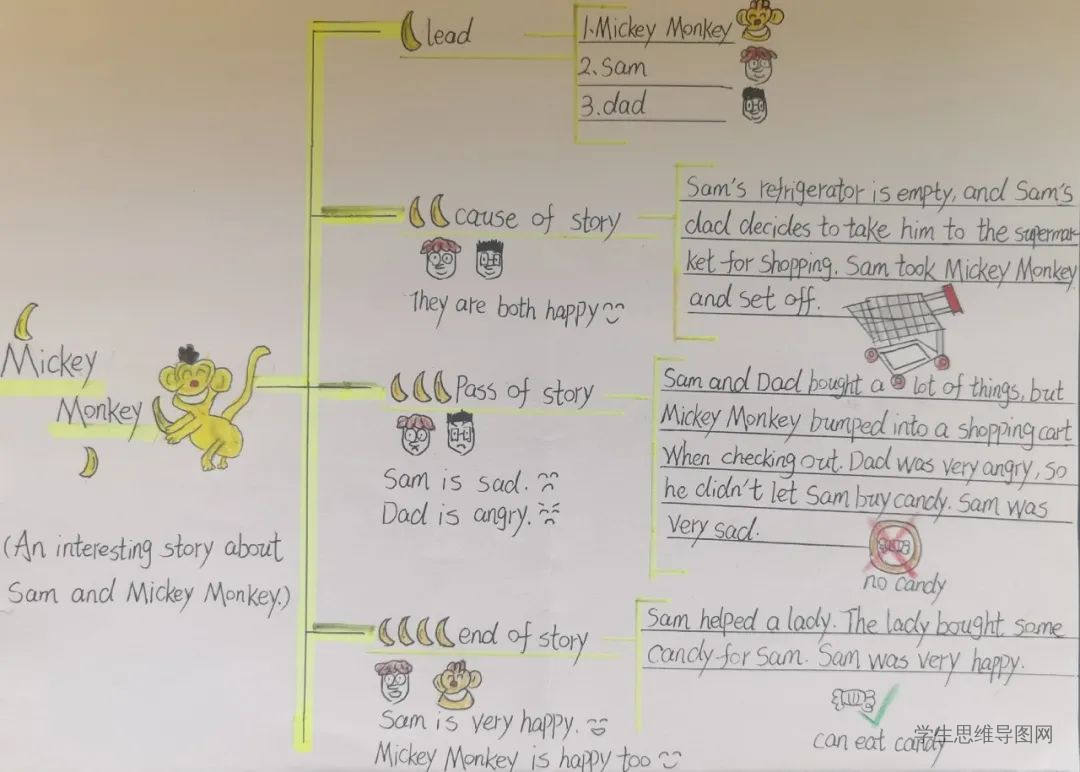 lead
1. Mickey Monkey
2. Sam
3. dad
cause of story
They are both happy
Sam's refrigerator is empty, and Sam's
dad decides to take him to the supermar-
ket for shopping. Sam took Mickey Monkey
and set off.
Mickey
Monkey
(An interesting story about
Sam and Mickey Monkey.)
Pass of story
Sam is sad.
Dad is angry.
Sam and Dad bought a lot of things, but
Mickey Monkey bumped into a shopping cart
When checking out. Dad was very angry, so
he didn't let Sam buy candy. Sam was
very sad.
no candy
end of story
Sam is very happy.
Mickey Monkey is happy too
Sam helped a lady. The lady bought some
candy for Sam. Sam was very happy.
can eat candy
学生思维导图网